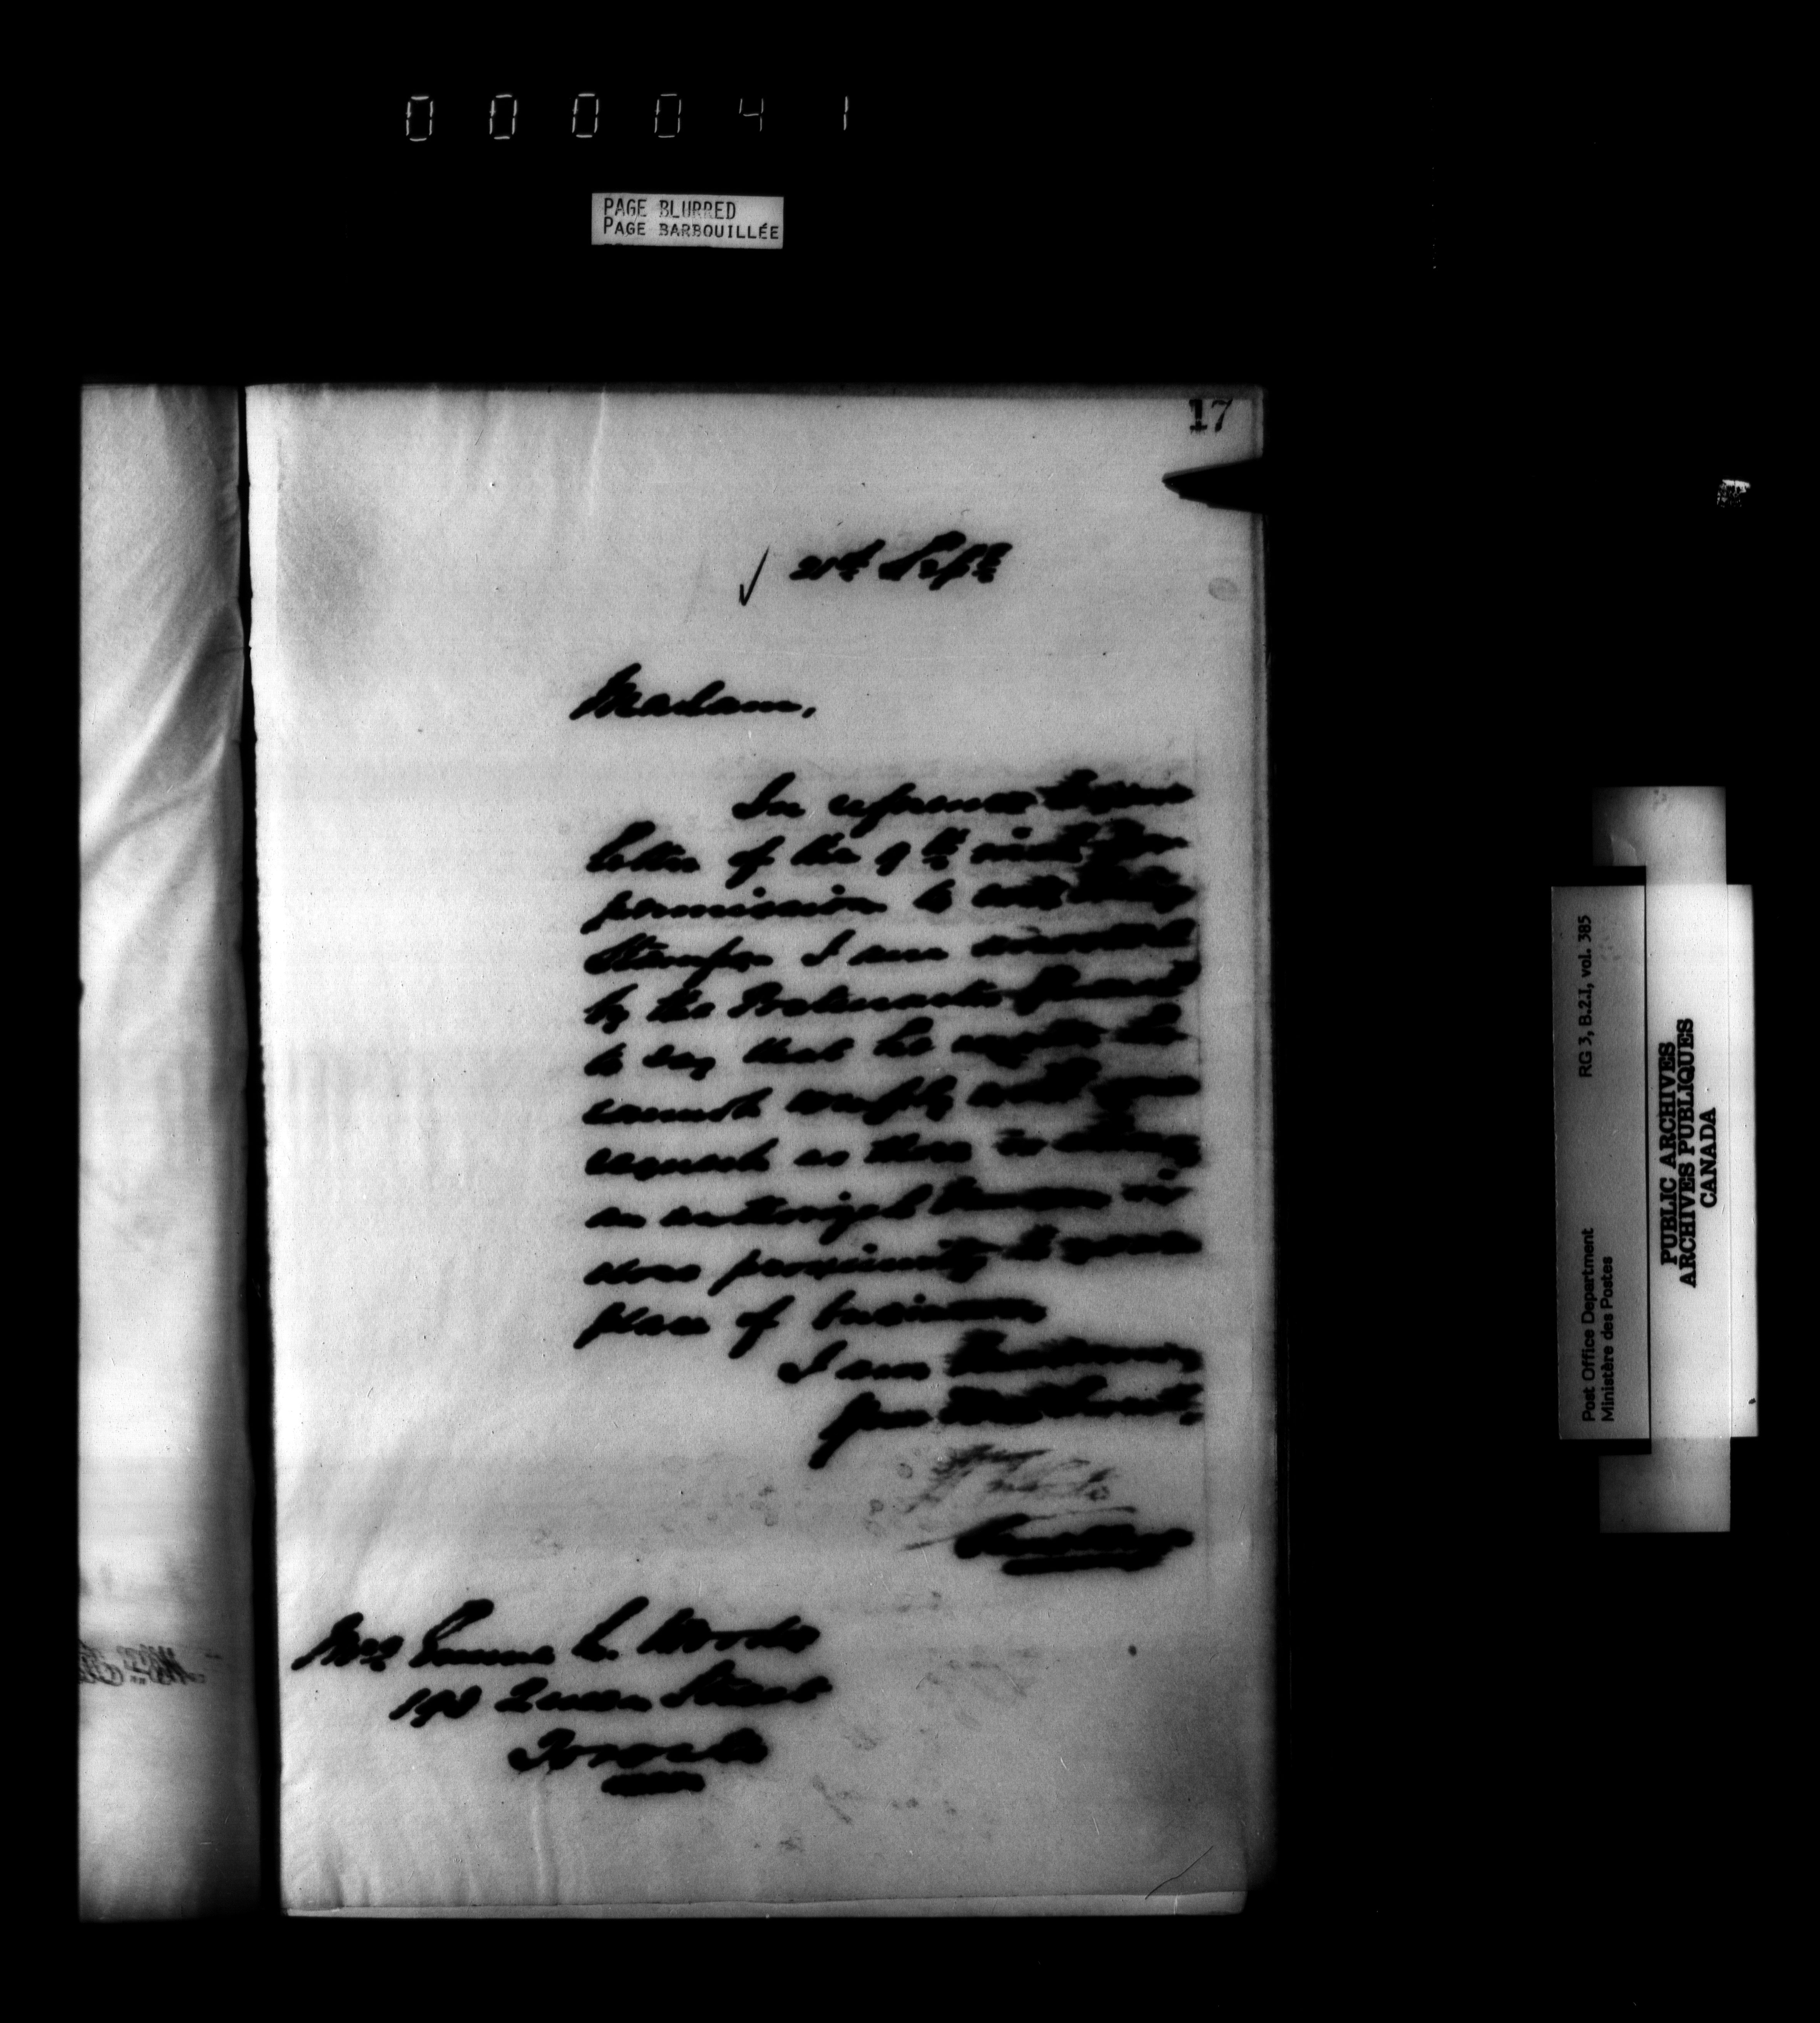 000041
PAGE BLURRED
PAGE BARBOUILLÉE
17
21st Sept
Madam,
In reference to your
letter of the 9th inst for
permission to sell
Stamps I am directed
by the Postmaster General
to say that he regrets he
cannot comply with your
request as there is already
an authorized Vendor in
close proximity to your
place of business.
I am
Your
Secretary
Mrs Emma L. Woods
198 Queen Street
Toronto
Post Office Department RG 3, B.2.I, vol. 385
Ministère des Postes
PUBLIC ARCHIVES
ARCHIVES PUBLIQUES
CANADA